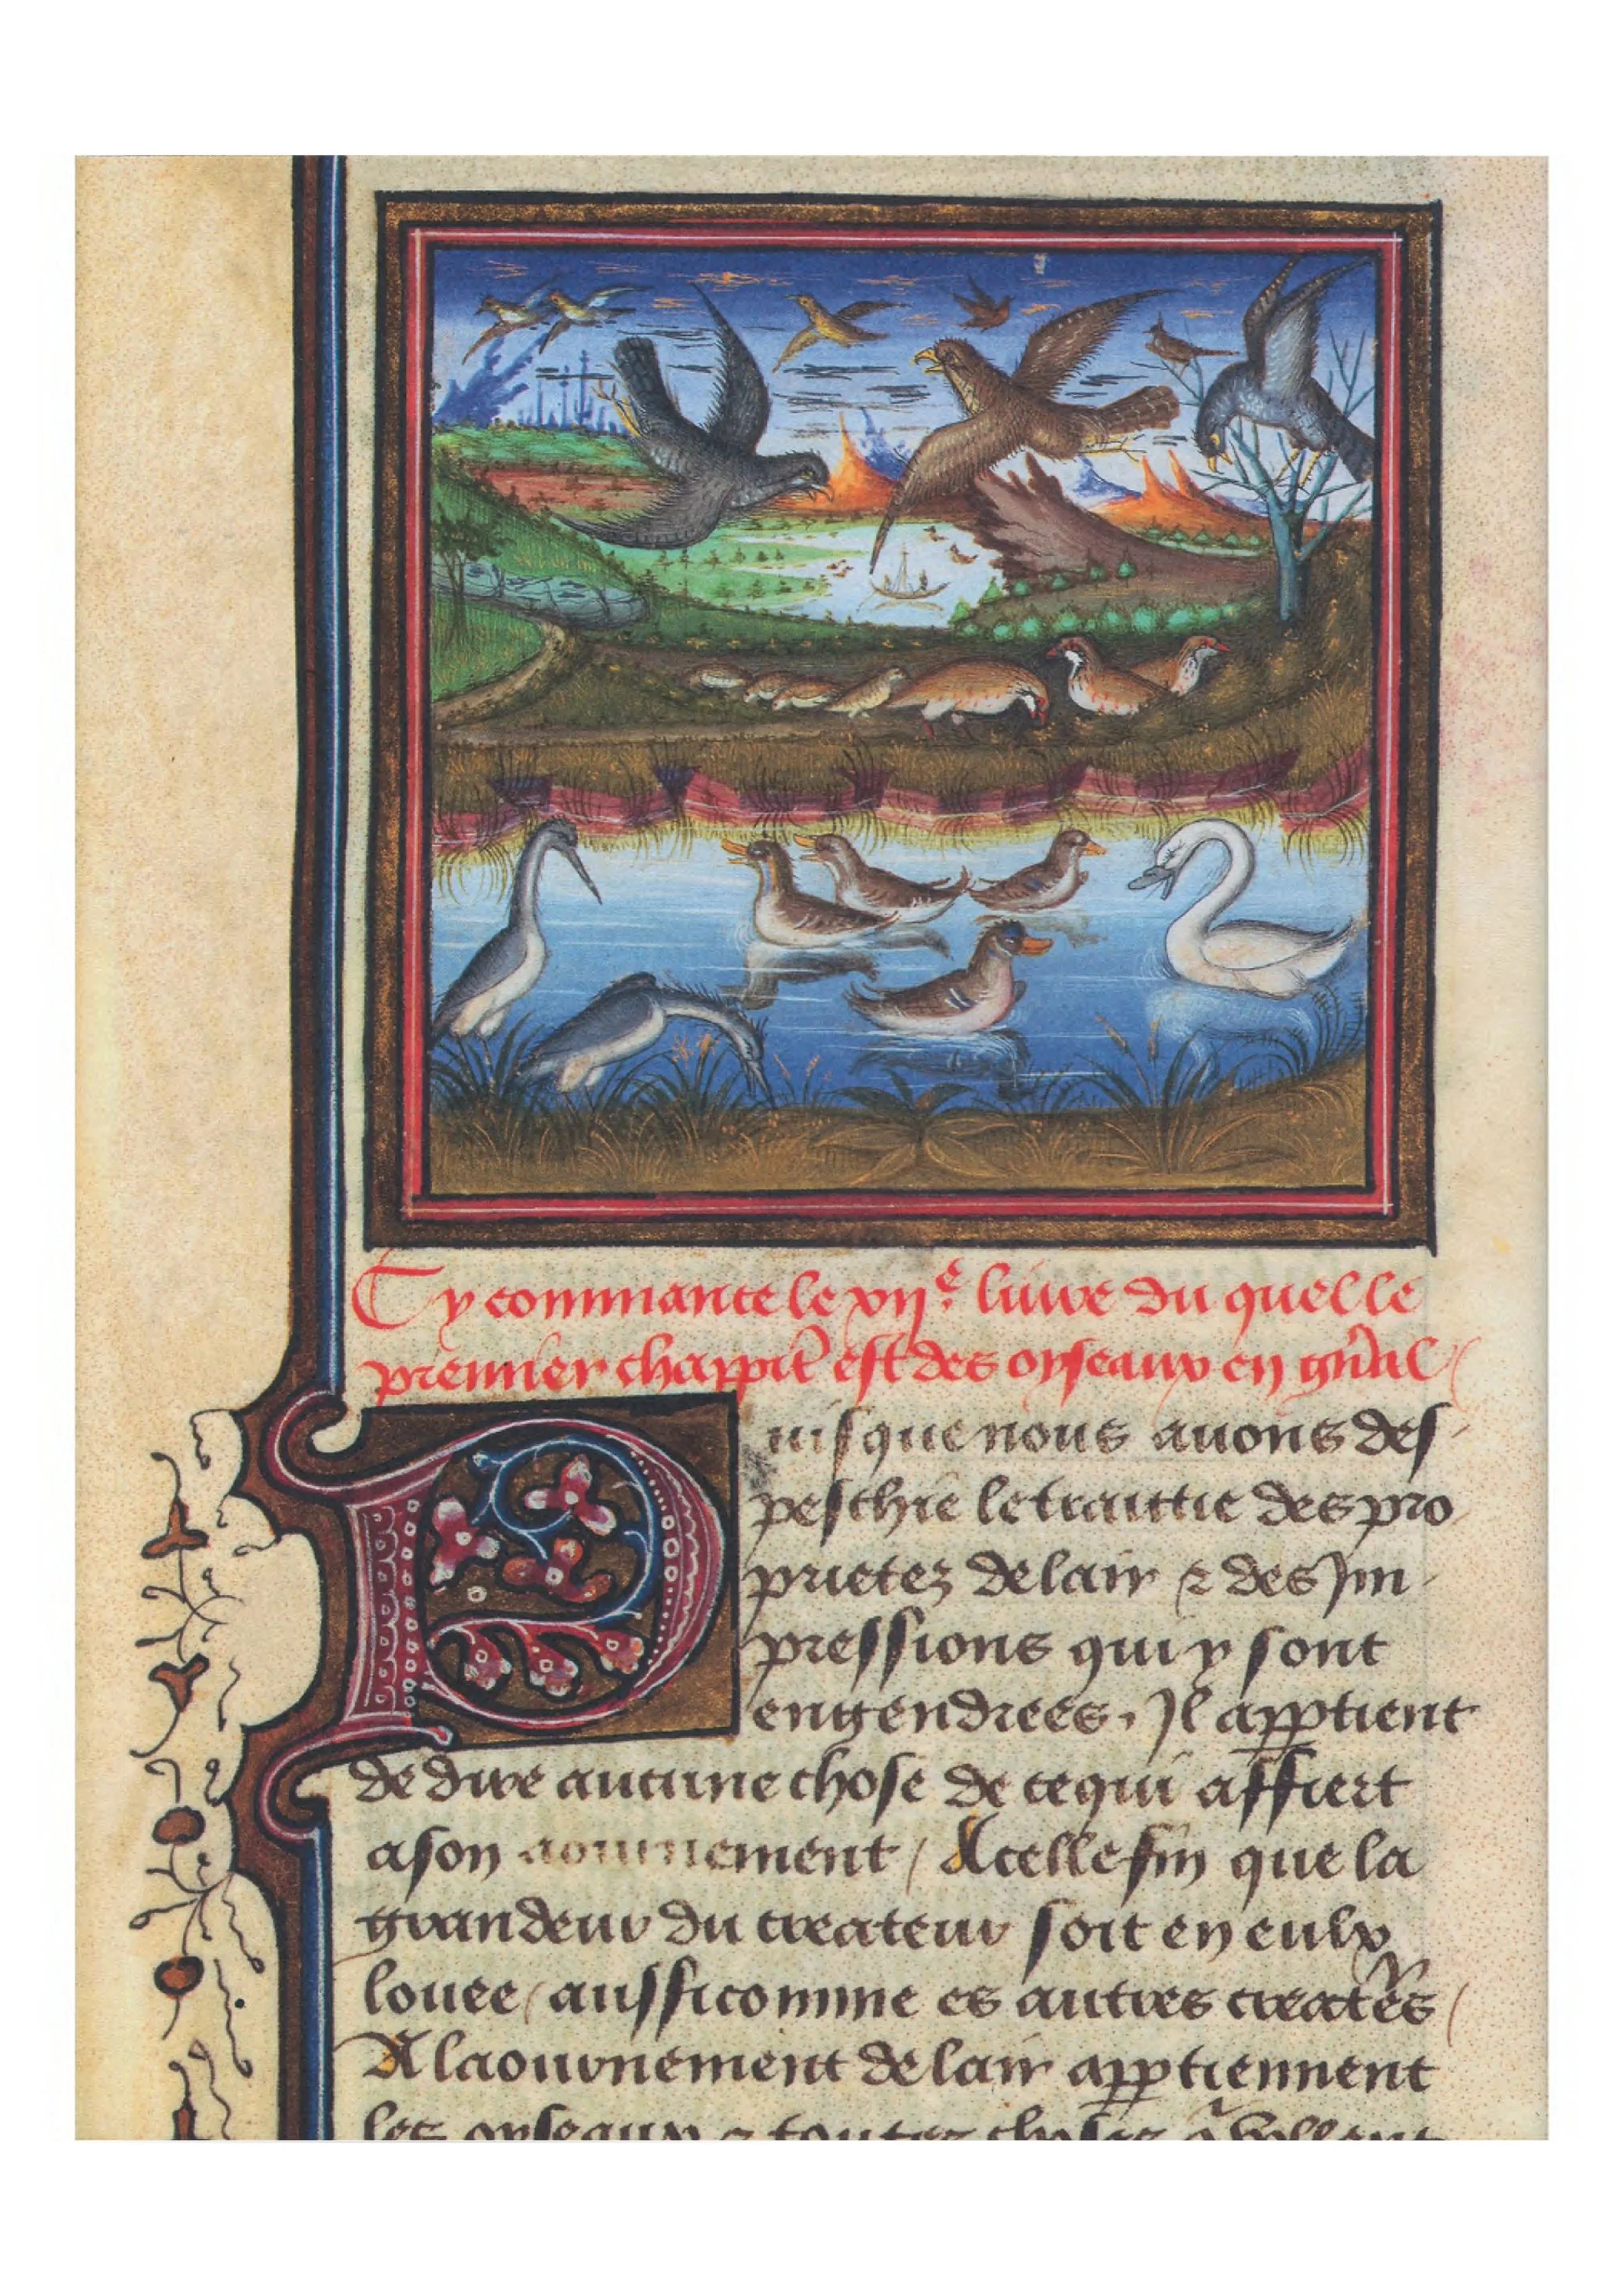 Cy commance le xije liure du quel le
premier chappitre est des oyseaux en gnal
Puis que nous auons des
peschie le traittie des pro
prietez de lair & des Jm
pressions qui y sont
engendrees, Jl apptient
de dire aucune chose de ce qui affiert
a son aournement / A celle fin que la
grandeur du createur soit en eulx
louee / aussi comme es autres creatrs /
A laournement de lair apptiennent
les oyseaux & toutes choses q vollent